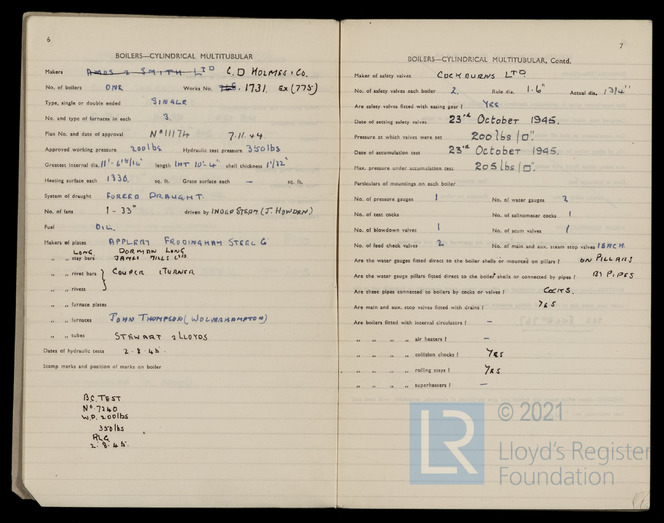 6
BOILERS—CYLINDRICAL MULTITUBULAR
Makers AMOS & SMITH LTD C.D HOLMES & Co.
No. of boilers ONE Works No. 1731. Ex (775)
Type, single or double ended SINGLE
No. and type of furnaces in each 3.
Plan No. and date of approval No 11174 7.11.44
Approved working pressure 200 lbs Hydraulic test pressure 350 lbs
Greatest internal dia. length INT 10'-4" shell thickness 1 1/32"
Heating surface each 1330. sq. ft. Grate surface each — sq. ft.
System of draught FORCED DRAUGHT.
No. of fans 1 - 33" driven by STEAM (J. HOWDEN)
Fuel OIL.
Makers of plates APPLEBY FRODINGHAM STEEL Co
LONG. DORMAN LONG
„ „ stay bars JAMES MILLS LTD
„ „ rivet bars } COOPER & TURNER
„ „ rivets
„ „ furnace plates
„ „ furnaces JOHN THOMPSON (WOLVERHAMPTON)
„ „ tubes STEWART & LLOYDS
Dates of hydraulic tests 2.8.45
Stamp marks and position of marks on boiler
B.S. TEST
No. 7240
W.P. 200 lbs
350 lbs
RLG
2.8.45.
7
BOILERS—CYLINDRICAL MULTITUBULAR, Contd.
Maker of safety valves COCKBURNS LTD.
No. of safety valves each boiler 2. Rule dia. 1.6" Actual dia. 1 3/4"
Are safety valves fitted with easing gear? YES
Date of setting safety valves 23rd October 1945.
Pressure at which valves were set 200 lbs/□".
Date of accumulation test 23rd October 1945.
Max. pressure under accumulation test 205 lbs/□".
Particulars of mountings on each boiler
No. of pressure gauges 1 No. of water gauges 2
No. of test cocks No. of salinometer cocks 1
No. of blowdown valves 1 No. of scum valves 1
No. of feed check valves 2 No. of main and aux. steam stop valves 1 EACH.
Are the water gauges fitted direct to the boiler shells or mounted on pillars? ON PILLARS
Are the water gauge pillars fitted direct to the boiler shells or connected by pipes? BY PIPES
Are these pipes connected to boilers by cocks or valves? COCKS.
Are main and aux. stop valves fitted with drains? YES
Are boilers fitted with internal circulators? —
„ „ „ „ air heaters? —
„ „ „ „ collision chocks? YES
„ „ „ „ rolling stays? YES
„ „ „ „ superheaters? —
LR © 2021
Lloyd's Register
Foundation